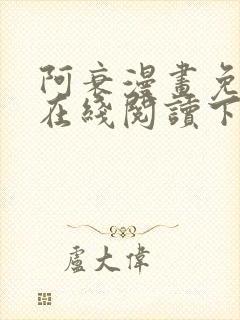 阿衰漫畫免
在綫閱讀下
盧大偉